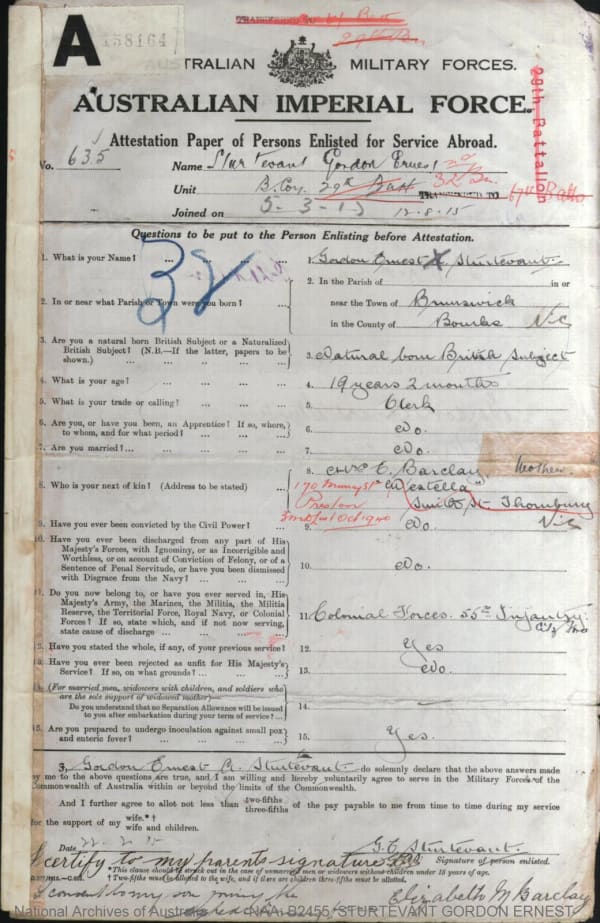 A
158164
29th Bn.
AUSTRALIAN MILITARY FORCES.
AUSTRALIAN IMPERIAL FORCE.
29th Battalion
Attestation Paper of Persons Enlisted for Service Abroad.
No. 635 Name Sturtevant Gordon Ernest
Unit B. Coy. 29th Batt 32 Bn. TRANSFERRED TO
Joined on 5-3-15 12-8-15
Questions to be put to the Person Enlisting before Attestation.
1. What is your Name? ... ... ... 1. Gordon Ernest A. Sturtevant
32
2. In or near what Parish or Town were you born? ... 2. In the Parish of in or
near the Town of Brunswick
in the County of Bourke Vic
3. Are you a natural born British Subject or a Naturalized
British Subject? (N.B.—If the latter, papers to be
shown.) ... ... ... ... 3. Natural born British Subject
4. What is your age? ... ... ... ... 4. 19 years 2 months
5. What is your trade or calling? ... ... ... 5. Clerk
6. Are you, or have you been, an Apprentice? If so, where,
to whom, and for what period? ... ... ... 6. No.
7. Are you married? ... ... ... ... 7. No.
8. Who is your next of kin? (Address to be stated) ... 8. Mrs E. Barclay Mother
"Westella"
Smith St. Thornbury
Vic
170 Murray St
Preston
1 Oct 1940
9. Have you ever been convicted by the Civil Power? ... 9. No.
10. Have you ever been discharged from any part of His
Majesty's Forces, with Ignominy, or as Incorrigible and
Worthless, or on account of Conviction of Felony, or of a
Sentence of Penal Servitude, or have you been dismissed
with Disgrace from the Navy? ... ... ... 10. No.
11. Do you now belong to, or have you ever served in, His
Majesty's Army, the Marines, the Militia, the Militia
Reserve, the Territorial Force, Royal Navy, or Colonial
Forces? If so, state which, and if not now serving,
state cause of discharge ... ... ... ... 11. Colonial Forces. 55th Infantry
12. Have you stated the whole, if any, of your previous service? 12. Yes
13. Have you ever been rejected as unfit for His Majesty's
Service? If so, on what grounds? ... ... ... 13. No.
14. (For married men, widowers with children, and soldiers who
are the sole support of widowed mother)—
Do you understand that no Separation Allowance will be issued
to you after embarkation during your term of service? ... 14.
15. Are you prepared to undergo inoculation against small pox
and enteric fever? ... ... ... ... 15. Yes.
I, Gordon Ernest A. Sturtevant do solemnly declare that the above answers made
by me to the above questions are true, and I am willing and hereby voluntarily agree to serve in the Military Forces of the
Commonwealth of Australia within or beyond the limits of the Commonwealth.
And I further agree to allot not less than two-fifths three-fifths of the pay payable to me from time to time during my service
for the support of my wife.*†
wife and children.
Date G. E. Sturtevant
Signature of person enlisted.
I certify to my parents signature
*This clause should be struck out in the case of unmarried men or widowers without children under 18 years of age.
†Two-fifths must be allotted to the wife, and if there are children three-fifths must be allotted.
I consent to my son joining the Elizabeth M Barclay
National Archives of Australia NAA: B2455, STURTEVANT GORDON ERNEST